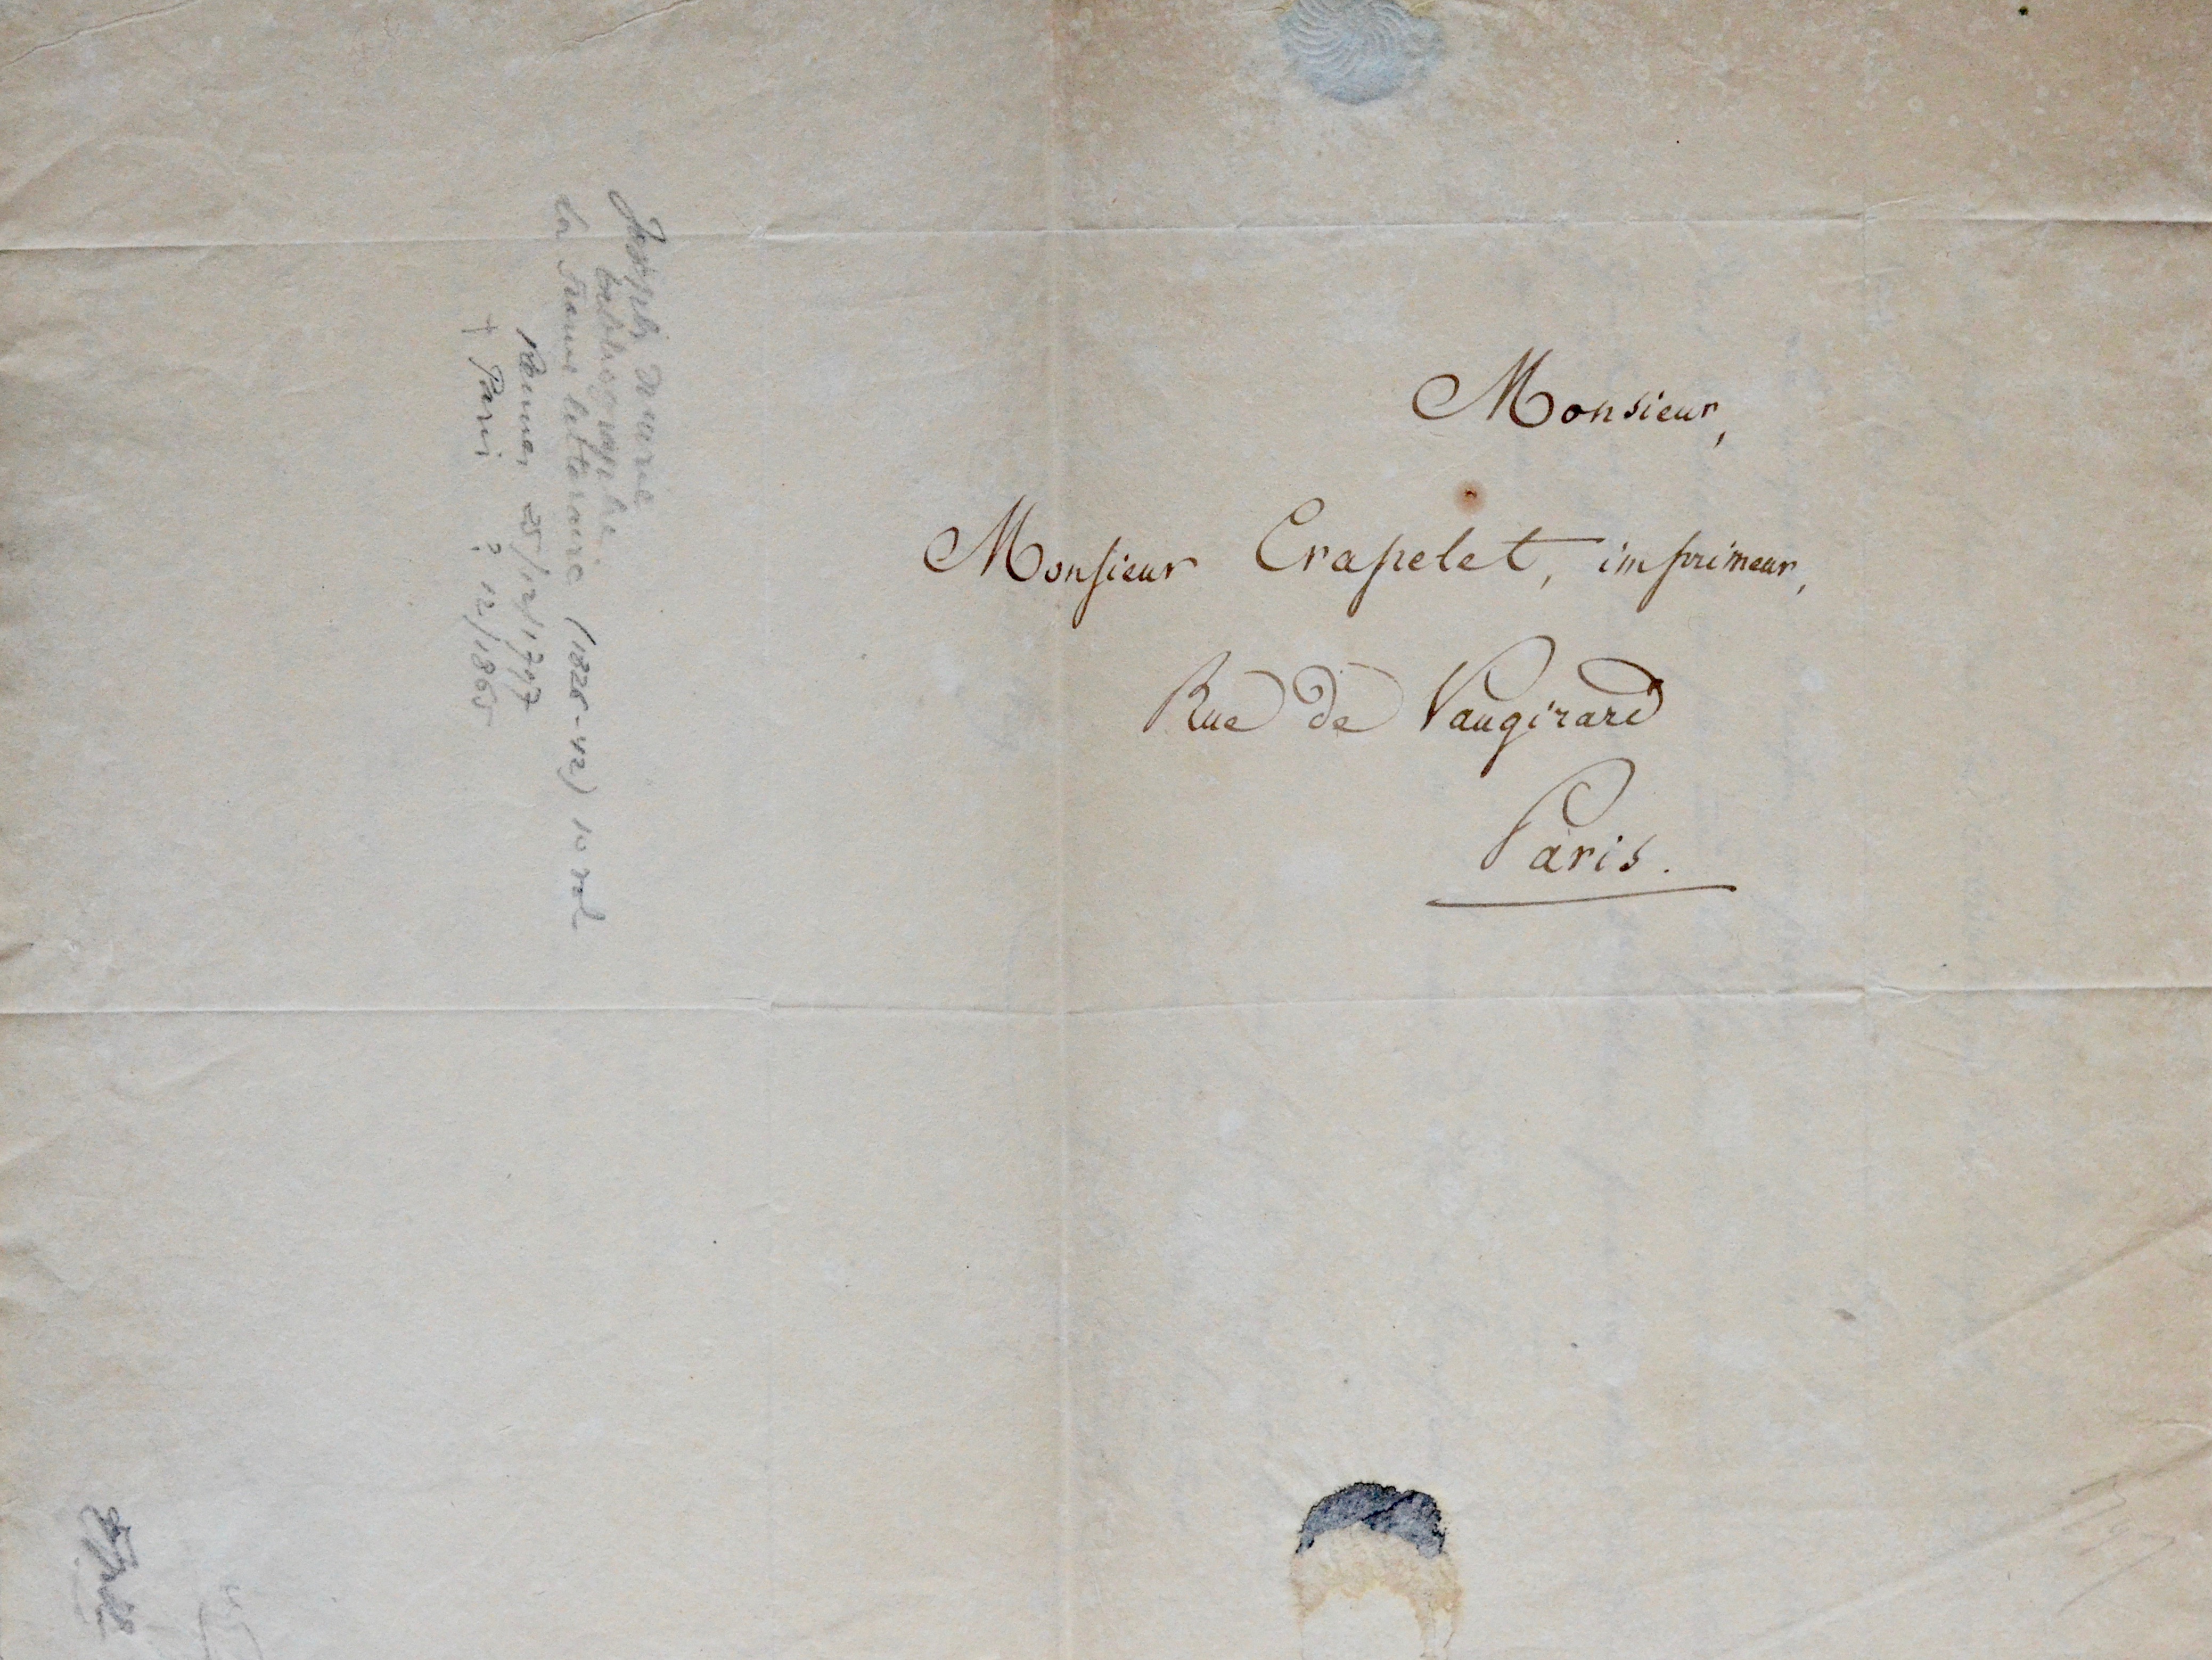 Monsieur,
Monsieur Crapelet, imprimeur,
Rue de Vaugirard
Paris.
Joseph Marie
bibliographe
la France littéraire (1826-42) 10 vol.
Rennes 25/12/1797
+ Paris ? 12/1865